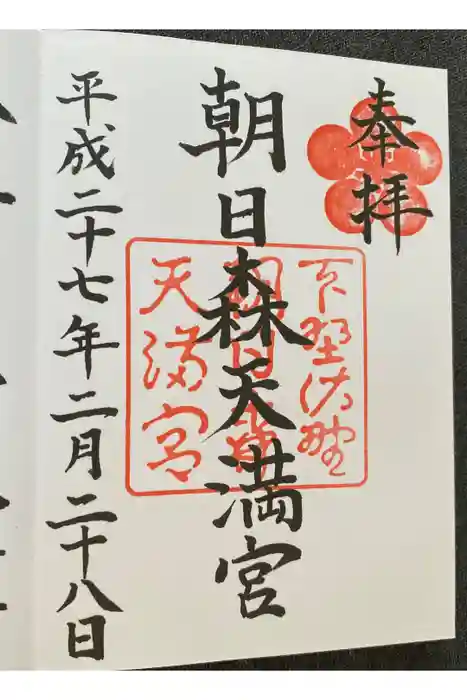 奉拝
下野佐野
朝日森
天満宮
朝日森天満宮
平成二十七年二月二十八日